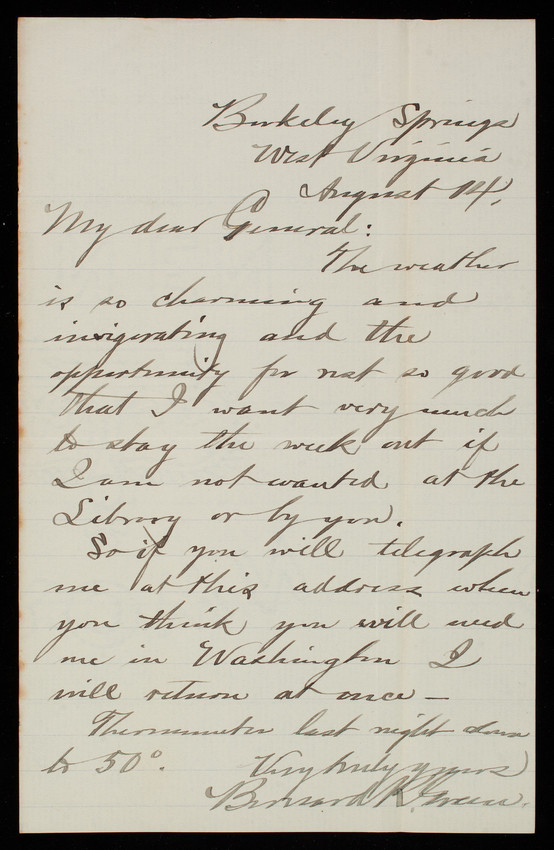 Berkeley Springs
West Virginia
August 14,
My dear General:
The weather
is so charming and
invigorating and the
opportunity for rest so good
that I want very much
to stay the week out if
I am not wanted at the
Library or by you.
So if you will telegraph
me at this address when
you think you will need
me in Washington I
will return at once —
Thermometer last night down
to 50°.
Very truly yours
Bernard R. Green.